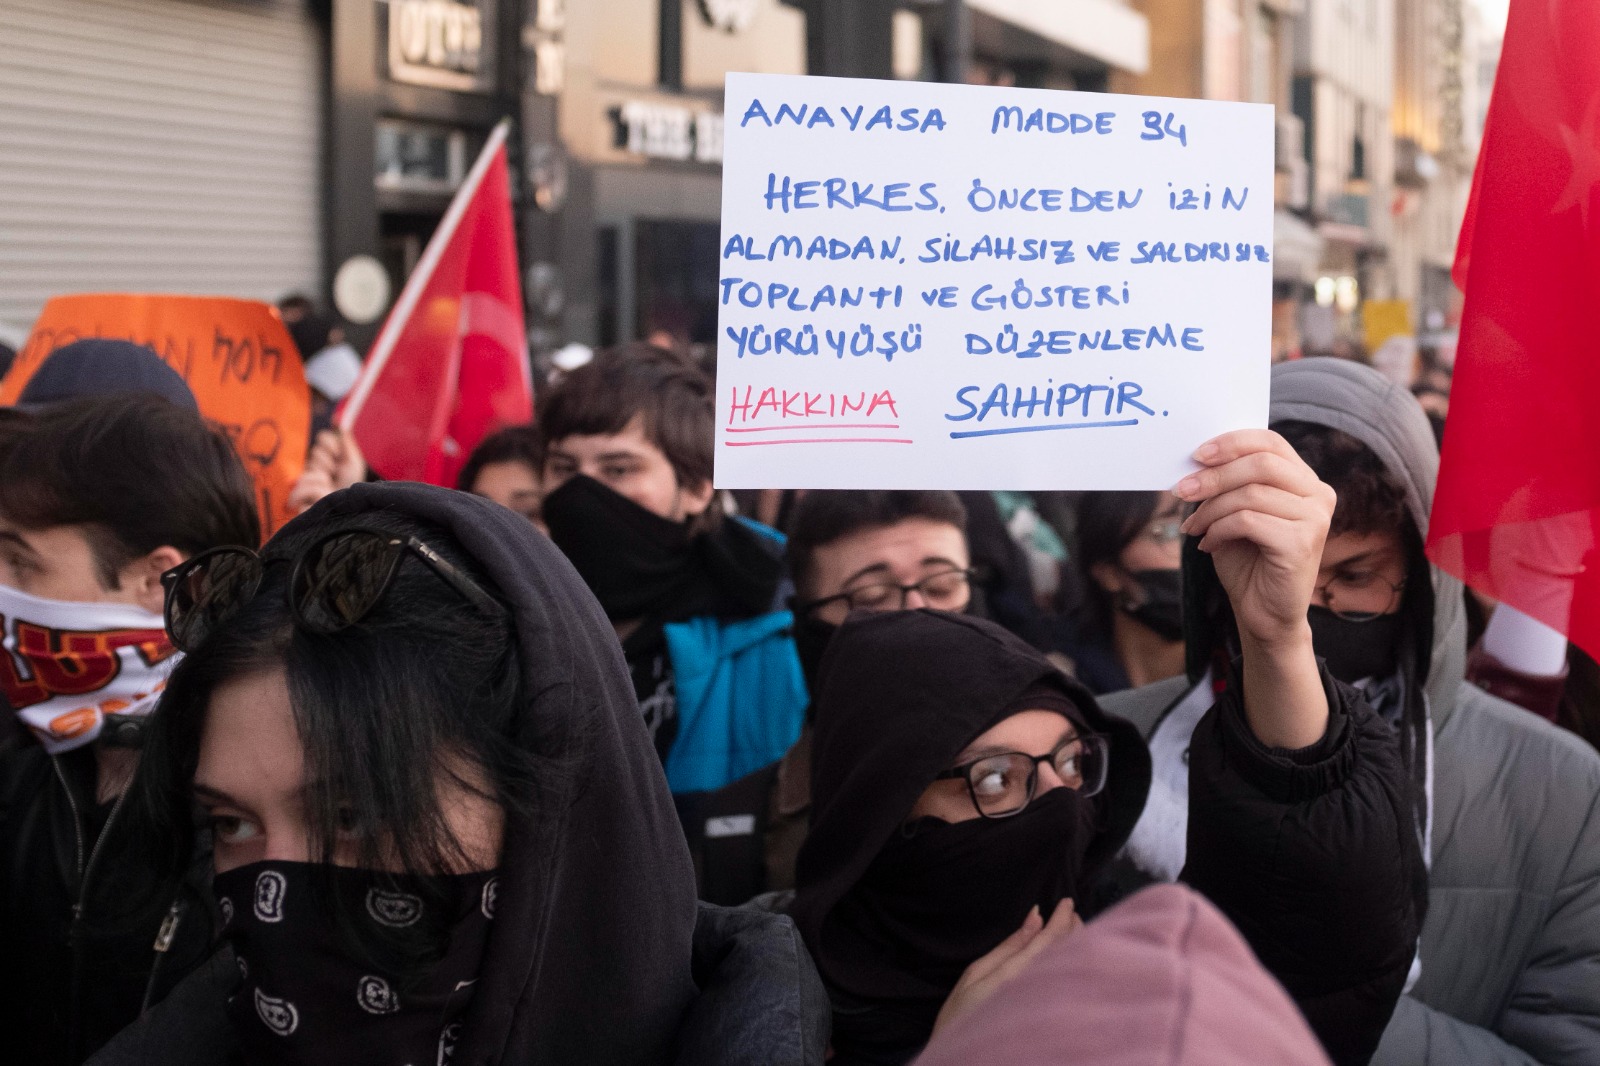 ANAYASA MADDE 34
HERKES, ÖNCEDEN İZİN
ALMADAN, SİLAHSIZ VE SALDIRISIZ
TOPLANTI VE GÖSTERİ
YÜRÜYÜŞÜ DÜZENLEME
HAKKINA SAHİPTİR.
THE
404